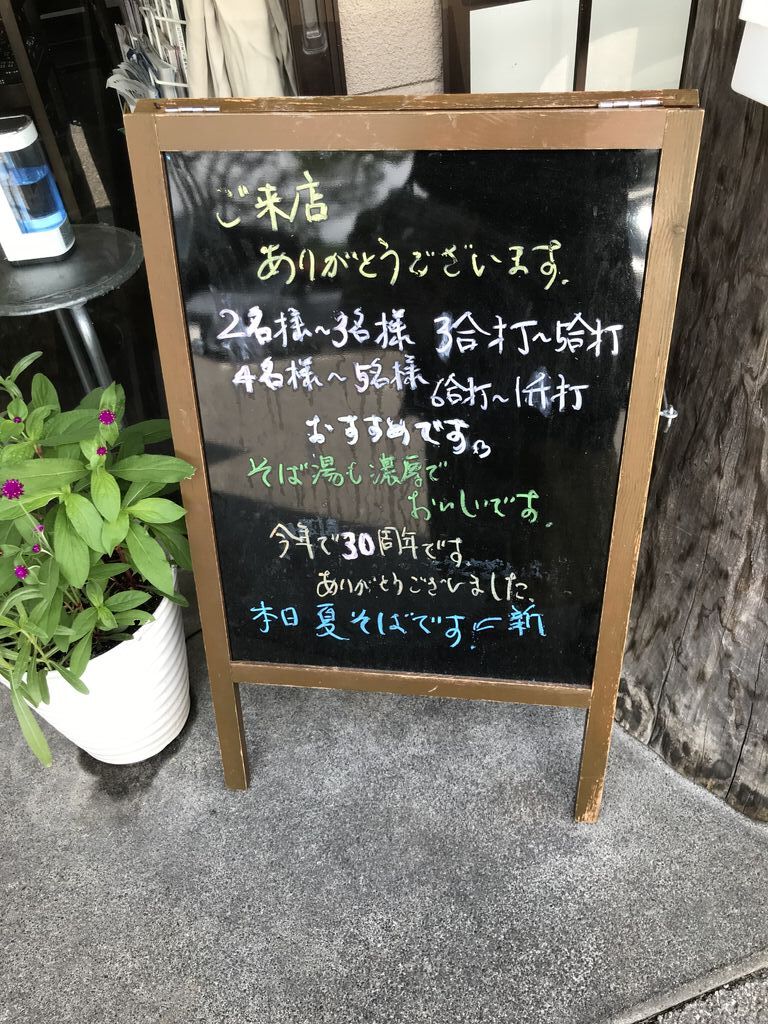 ご来店
ありがとうございます.
2名様〜3名様 3合打〜5合打
4名様〜5名様 6合打〜1升打
おすすめです。
そば湯も濃厚で
おいしいです.
今年で30周年です.
ありがとうございました.
本日 夏そばです!⇐新